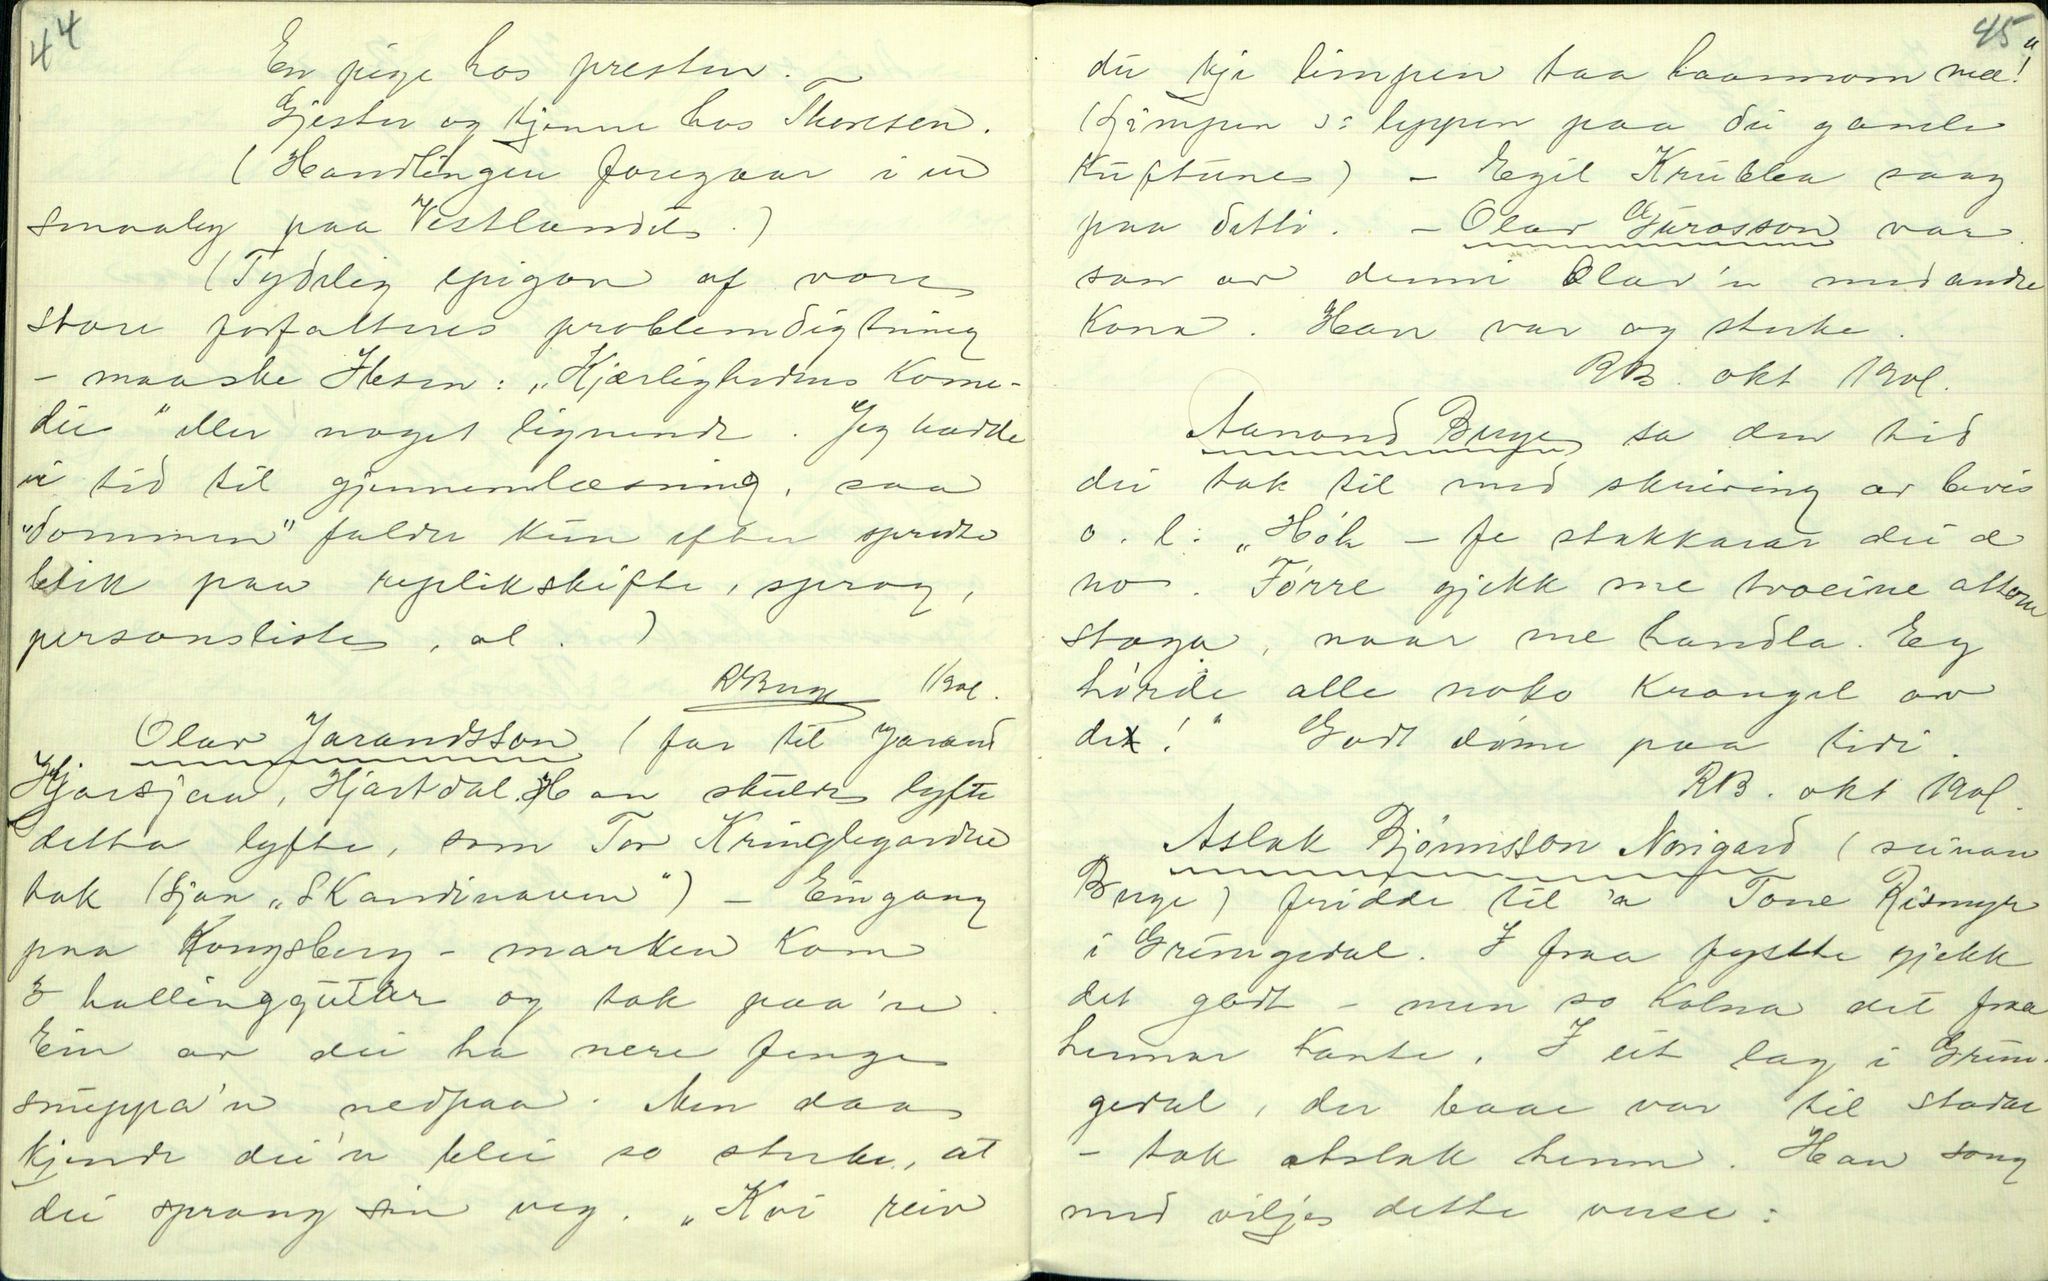 44
En pige hos presten.
Gjester og kjenne hos Thoresen.
(Handlingen foregaar i en
smaaby paa Vestlandet.)
(Tydelig epigon af vore
store forfatteres problemdigtning
- maaske Ibsen: „Kjærlighedens Kome-
die" eller noget lignende. Jeg hadde
ei tid til gjennemlæsning, saa
"dommen" falder kun efter spredte
blik paa replikskifte, sprog,
personliste, ol.)
RBerge 1901.
Olav Jarandsson (far til Jarand
Hjarsjaa, Hjartdal. Han skulde lyfte
detta lyfte, som Tor Kringlegarden
tok (Sjaa „Skandinaven") - Eingong
paa Kongsberg-marken kom
3 hallinggutar og tok paa'en.
Ein av dei ha nere fenge
snuppa'n nedpaa. Men daa
kjende dei'n blei so sterke, at
dei sprang sin veg. „Kvi reiv
45
du kje limpen taa baanmom mæ!"
(Limpen ɔ: leppen paa dei gamle
Kuftune) - Egil Krublea saag
paa dette. - Olav Gurosson var
son av denne Olav'n med andre
Kona. Han var og sterke.
RB. okt 1901.
Aanond Berge sa den tid
dei tok til med skriving av bevis
o. l: „Høh - fe stakkarar dei æ
no. Førre gjekk me tvoeine attom
stoga, naar me handla. Eg
hørde alle noko Krangel av
det!" Godt døme paa tidi.
RB. okt 1901.
Aslak Bjørnsson Norigard (seinan
Berge) fridde til 'a Tone Rismyr
i Grungedal. I fraa fyste gjekk
det godt - men so kolna det fraa
hennar kante. I eit lag i Grun-
gedal, der baae var til stadar
- tok Aslak henn. Han song
med viljes dette verse: